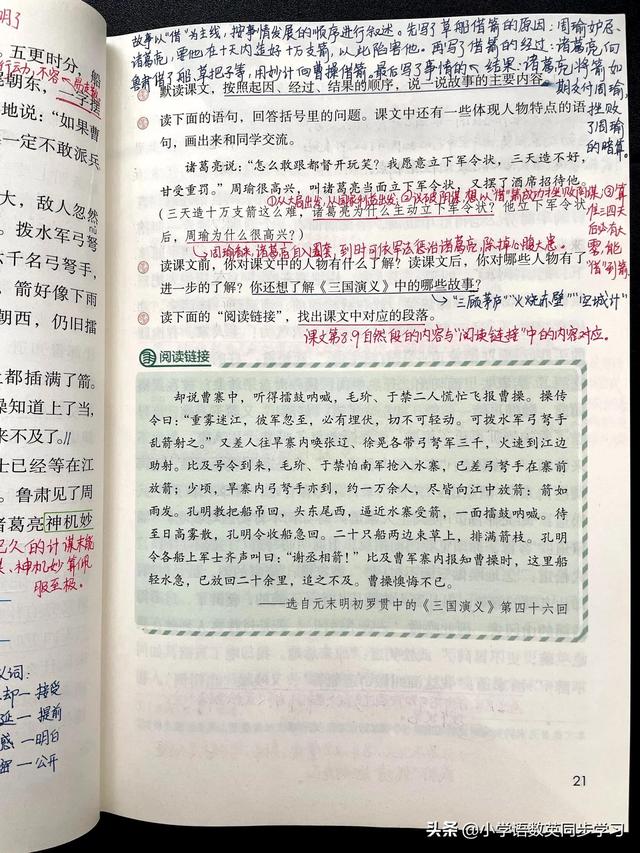 明了
五更时分，船
朝东，一字摆
地说：“如果曹
一定不敢派兵
大，敌人忽然
。拨水军弓弩
六千名弓弩手，
，箭好像下雨
朝西，仍旧擂
上都插满了箭。
操知道上了当，
来不及了。//
士已经等在江
。鲁肃见了周
诸葛亮神机妙
已久的计谋未能
神机妙算佩
服至极。
义词：
却—接受
延—提前
惑—明白
密—公开
故事以“借”为主线，按事情发展的顺序进行叙述。先写了草船借箭的原因：周瑜妒忌
诸葛亮，要他在十天内造好十万支箭，以此陷害他。再写了借箭的经过：诸葛亮向
鲁肃借了船、草把子等，用妙计向曹操借箭。最后写了事情的结果：诸葛亮将箭如
期交付周瑜，
挫败
了周瑜
的暗算。
默读课文，按照起因、经过、结果的顺序，说一说故事的主要内容。
读下面的语句，回答括号里的问题。课文中还有一些体现人物特点的语
句，画出来和同学交流。
诸葛亮说：“怎么敢跟都督开玩笑？我愿意立下军令状，三天造不好，
甘受重罚。”周瑜很高兴，叫诸葛亮当面立下军令状，又摆了酒席招待他。
①从大局出发，从国家利益出发；②识破周瑜的阴谋，想以“借”箭成功挫败阴谋；③算
准三四天
后必有大
雾，能
“借”到箭
（三天造十万支箭这么难，诸葛亮为什么主动立下军令状？他立下军令状
后，周瑜为什么很高兴？）
周瑜看来，诸葛亮自入圈套，到时可依军法惩治诸葛亮，除掉心腹大患。
读课文前，你对课文中的人物有什么了解？读课文后，你对哪些人物有了
进一步的了解？你还想了解《三国演义》中的哪些故事？
“三顾茅庐”“火烧赤壁”“空城计”
读下面的“阅读链接”，找出课文中对应的段落。
课文第8、9自然段的内容与“阅读链接”中的内容对应。
阅读链接
却说曹寨中，听得擂鼓呐喊，毛玠、于禁二人慌忙飞报曹操。操传
令曰：“重雾迷江，彼军忽至，必有埋伏，切不可轻动。可拨水军弓弩手
乱箭射之。”又差人往旱寨内唤张辽、徐晃各带弓弩军三千，火速到江边
助射。比及号令到来，毛玠、于禁怕南军抢入水寨，已差弓弩手在寨前
放箭；少顷，旱寨内弓弩手亦到，约一万余人，尽皆向江中放箭：箭如
雨发。孔明教把船吊回，头东尾西，逼近水寨受箭，一面擂鼓呐喊。待
至日高雾散，孔明令收船急回。二十只船两边束草上，排满箭枝。孔明
令各船上军士齐声叫曰：“谢丞相箭！”比及曹军寨内报知曹操时，这里船
轻水急，已放回二十余里，追之不及。曹操懊悔不已。
——选自元末明初罗贯中的《三国演义》第四十六回
21
头条 @小学语数英同步学习